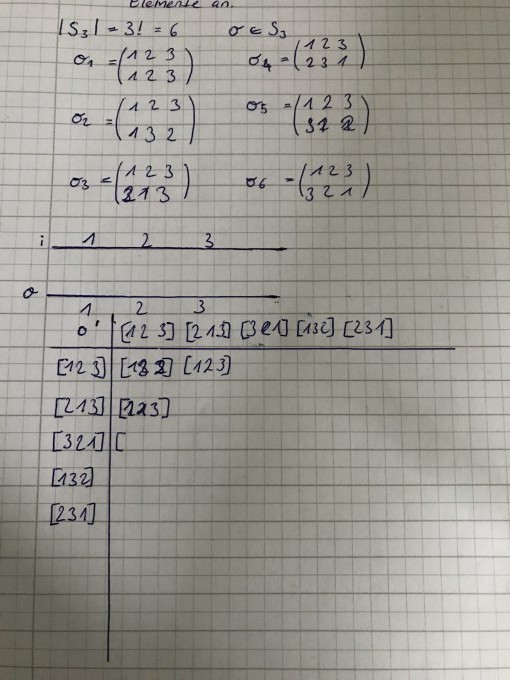 Elemente an.
|S₃| = 3! = 6 σ ∈ S₃
σ₁ = (1 2 3 / 1 2 3) σ₄ = (1 2 3 / 2 3 1)
σ₂ = (1 2 3 / 1 3 2) σ₅ = (1 2 3 / 3 1 2)
σ₃ = (1 2 3 / 2 1 3) σ₆ = (1 2 3 / 3 2 1)
i 1 2 3
σ
1 2 3
o' [1 2 3] [213] [321] [132] [231]
[12 3] [123]
[213]
[321] [
[132]
[231]